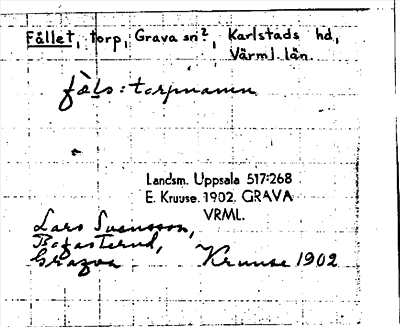 Fållet, torp, Grava sn?, Karlstads hd,
Värml. län.
fàls: torpnamn
Landsm. Uppsala 517:268
E. Kruuse. 1902. GRAVA
VRML.
Lars Svensson,
Grava
Kruuse 1902